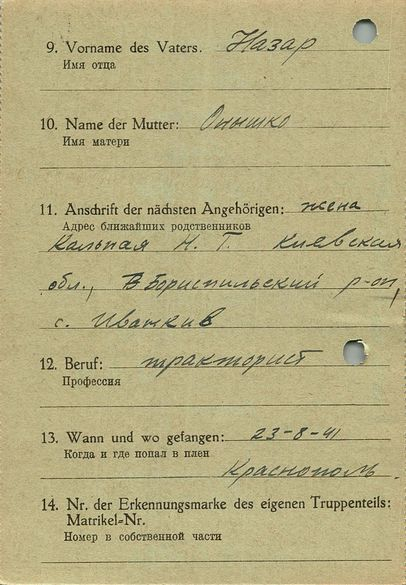 9. Vorname des Vaters. Назар
Имя отца
10. Name der Mutter: Онышко
Имя матери
11. Anschrift der nächsten Angehörigen: жена
Адрес ближайших родственников
Кальная Н. Г. Киевская
обл., Бориспильский р-он,
с. Иванкив
12. Beruf: тракторист
Профессия
13. Wann und wo gefangen: 23-8-41
Когда и где попал в плен
Краснополь.
14. Nr. der Erkennungsmarke des eigenen Truppenteils:
Matrikel=Nr.
Номер в собственной части